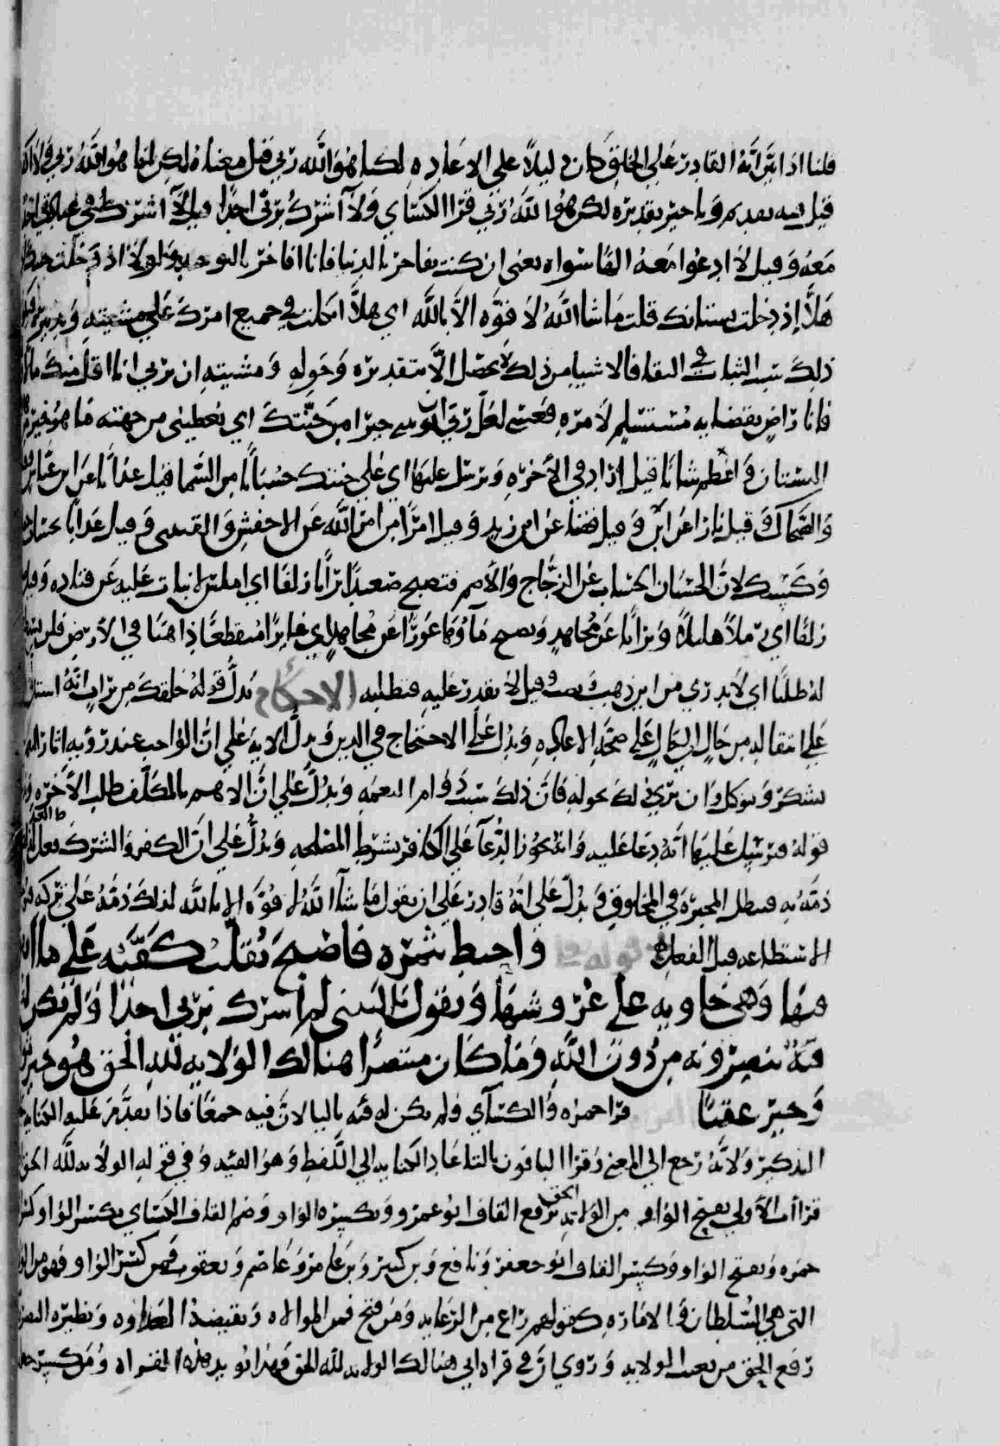 قلنا اذا ثبت انه القادر على الخلق كان دليلا على الاعاده لكنا هو الله ربي قيل معناه لكن انا هو الله ربي
قيل فيه تقديم وتاخير تقديره لكن هو الله ربي قرا الكسائي ولا اشرك بربي احدا قيل لا اشرك
معه وقيل لا ادعوا معه الها سواه يعني ان كنت تفاخر بالدنيا فانا افاخر بالتوحيد ولولا اذ دخلت جنتك
هلا اذ دخلت بستانك قلت ما شا الله لا قوه الا بالله اي هلا اتكلت في جميع امرك على مشيته
ذلك سبب الثبات في البقا فالاشيا من ذلك لا يحصل الا بتقديره وحوله ومشيته ان ترني انا اقل منك مالا
فانا راض بقضايه مستسلم لامره فعسى لعل ربي ان يوتين خيرا من جنتك اي يعطيني من جهته ما هو خير
البستان واعظم شانا قيل اراد في الاخره ويرسل عليها اي على جنتك حسبانا من السما قيل عذابا عن ابن عباس
والضحاك وقيل نارا عن وقيل قضا عن ابن زيد وقيل امرا من امر الله عن الاخفش والقتبي وقيل عذابا حساب
كسبت لان الحسبان الحساب عن الزجاج والاصم فتصبح صعيدا ترابا زلقا اي املس لا نبات عليه عن قتاده وقيل
زلقا اي رملا هايلا وترابا عن مجاهد ويصبح ماوها غورا عن مجاهد اي غايرا منقطعا ذاهبا في الارض فلن تستطيع
له طلبا اي لا يدري من اين ذهب وقيل لا يقدر عليه فتطلبه الاحكام يدل قوله خلقك من تراب انه استدل
على انتقاله من حال الى حال على صحه الاعاده ويدل على الاحتجاج في الدين ويدل الايه على ان الواجب عند رويه اثار النعم
يشكر ويتوكل وان يرى ذلك بحوله فان ذلك سبب دوام النعمه ويدل على ان الاهم بالمكلف طلب الاخره
قوله فيرسل عليها انه دعا عليه وانه يجوز الدعا على الكافر بشرط المصلحه ويدل على ان الكفر والشرك فعل العبد
ذمه به فبطل المجبره في المخلوق ويدل على انه قادر على ان يقول ما شا الله لا قوه الا بالله لذلك ذمه على تركه
الاستطاعه قبل الفعل قوله واحيط بثمره فاصبح يقلب كفيه على ما انفق
فيها وهي خاويه على عروشها ويقول يا ليتني لم اشرك بربي احدا ولم تكن له
فيه ينصرونه من دون الله وما كان منتصرا هنالك الولايه لله الحق هو خير
وخير عقبا قرا حمزه والكسائي ولم يكن له فيه باليا لان فيه جمعا فاذا تقدم عليه الكنايه
التذكير ولانه رجع الى المعنى وقرا الباقون بالتا عاد الكنايه الى اللفظ وهو الفيه وفي قوله الولايه لله الحق
قراات الاولى بفتح الواو من الولايه الحق برفع القاف ابو عمرو وبكسره الواو وضم القاف الكسائي بكسر الواو
حمزه وبفتح الواو وكسر القاف ابو جعفر ونافع وابن كثير وابن عامر وعاصم ويعقوب فمن كسر الواو فهو من
التي هي السلطان والاماره كقولهم راع من الرعايه ومن فتح فمن الموالاه ونقيضه العداوه ونظيره النصره
رفع الحق من نعت الولايه وروي ان في قراه ابي هنالك الولايه الحق لله فهذا يويد هذه القراه ومن كسر